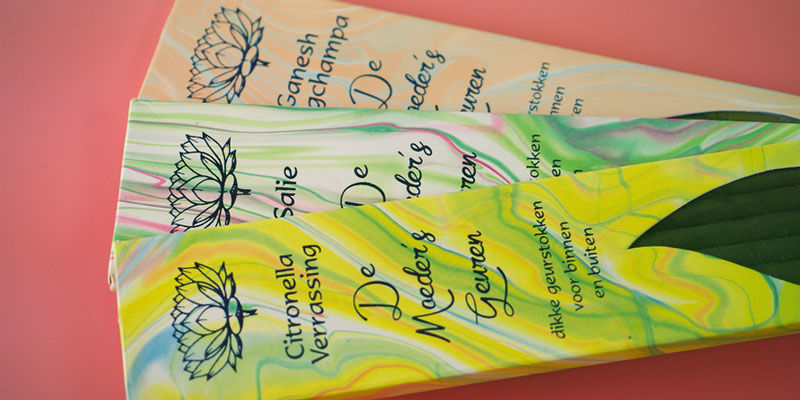 Ganesh
gchampa
De
oeder's
Geuren
rstokken
nnen
en
Salie
De
oeder's
uren
stokken
en
en
Citronella
Verrassing
De
Moeder's
Geuren
dikke geurstokken
voor binnen
en buiten